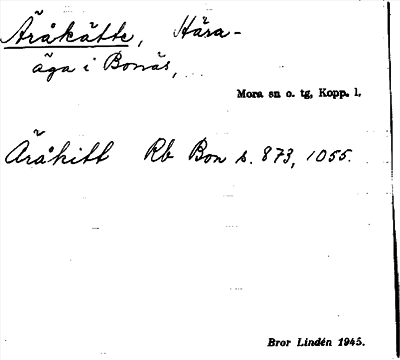 Äråkätte, Hära-
äga i Bonäs,
Mora sn o. tg, Kopp. l.
Äråkitt Rb Bon s. 873, 1055.
Bror Lindén 1945.